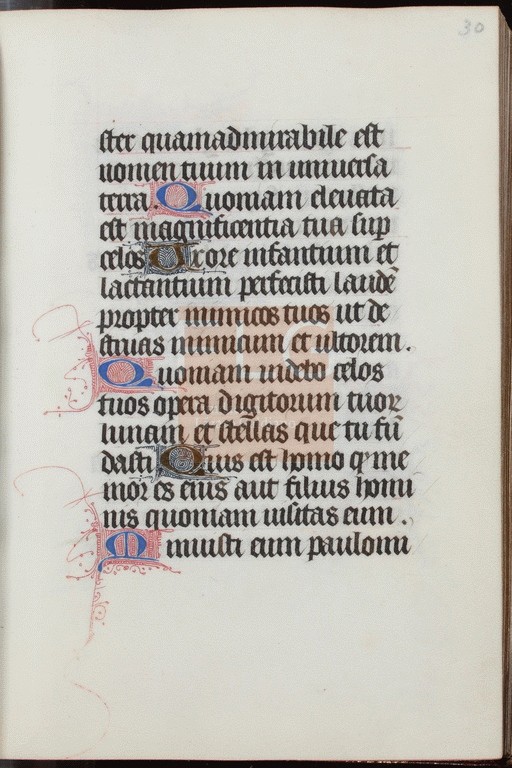 30
ster quamadmirabile est
nomen tuum in uniuersa
terra. Quoniam eleuata
est magnificentia tua sup
celos Exore infantium et
lactantium perfecisti laudē
propter inimicos tuos ut de
struas inimicum et ultorem.
Quoniam uidebo celos
tuos opera digitorum tuoꝝ
lunam et stellas que tu fū
dasti Quis est homo ꝙ me
mor es eius aut filius homi
nis quoniam uisitas eum.
Minuisti eum paulomi